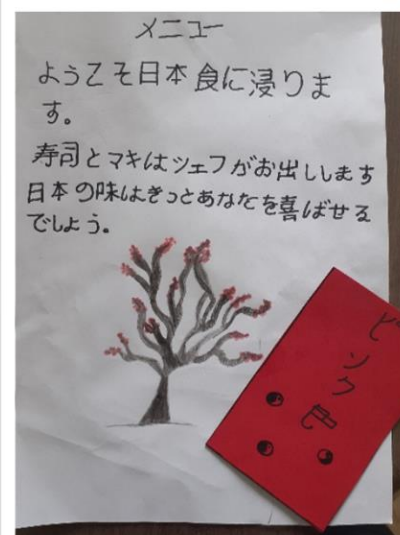 メニュー
ようこそ日本食に浸りま
す。
寿司とマキはシェフがお出しします
日本の味はきっとあなたを喜ばせる
でしょう。
ピンク色